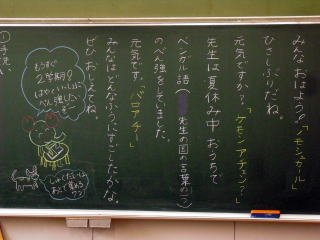 みんなおはよう!「モシュカール」
ひさしぶりだね。
元気ですか?「ケモンアチェン?」
先生は夏休み中おうちで
ベンガル語(先生の国の言葉の一つ)
のべん強をしていました。
元気です。「バロアチー」
みんなはどんなふうにすごしたかな。
ぜひおしえてね。
もうすぐ
2学期!
はやくいっしょに
べん強したい
しゅくだいは
あとで集める